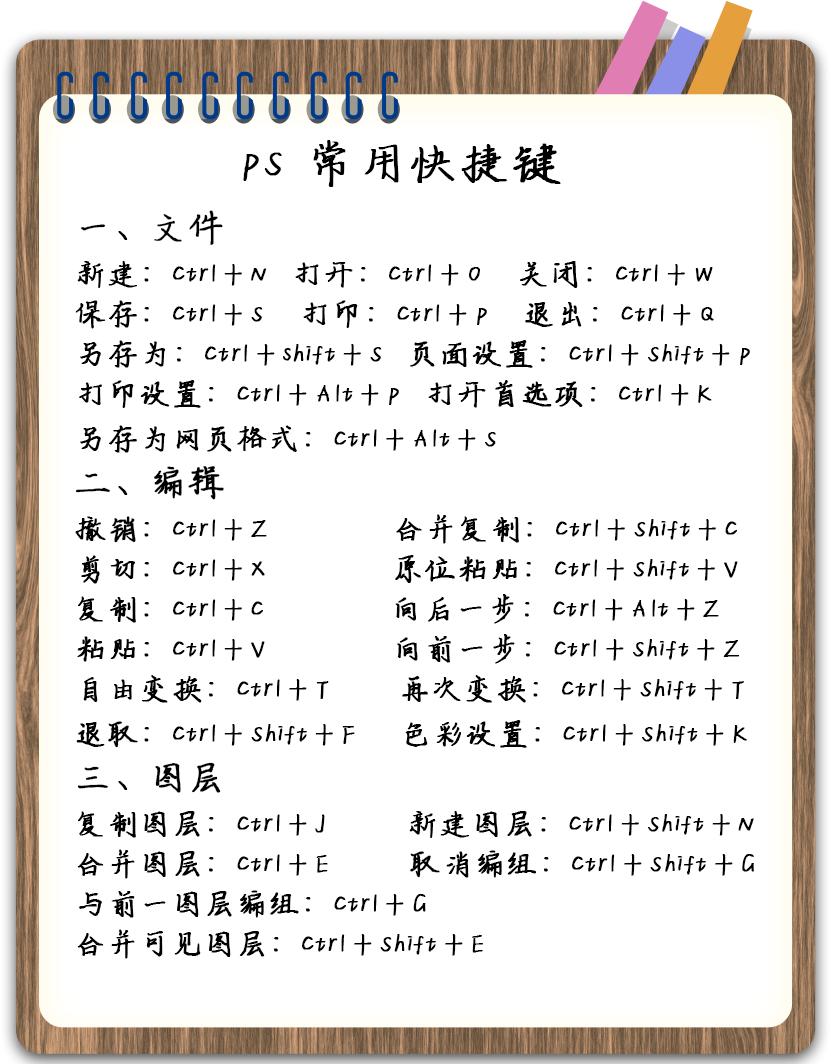 PS 常用快捷键
一、文件
新建：Ctrl+N 打开：Ctrl+O 关闭：Ctrl+W
保存：Ctrl+S 打印：Ctrl+P 退出：Ctrl+Q
另存为：Ctrl+Shift+S 页面设置：Ctrl+Shift+P
打印设置：Ctrl+Alt+P 打开首选项：Ctrl+K
另存为网页格式：Ctrl+Alt+S
二、编辑
撤销：Ctrl+Z 合并复制：Ctrl+Shift+C
剪切：Ctrl+X 原位粘贴：Ctrl+Shift+V
复制：Ctrl+C 向后一步：Ctrl+Alt+Z
粘贴：Ctrl+V 向前一步：Ctrl+Shift+Z
自由变换：Ctrl+T 再次变换：Ctrl+Shift+T
退取：Ctrl+Shift+F 色彩设置：Ctrl+Shift+K
三、图层
复制图层：Ctrl+J 新建图层：Ctrl+Shift+N
合并图层：Ctrl+E 取消编组：Ctrl+Shift+G
与前一图层编组：Ctrl+G
合并可见图层：Ctrl+Shift+E